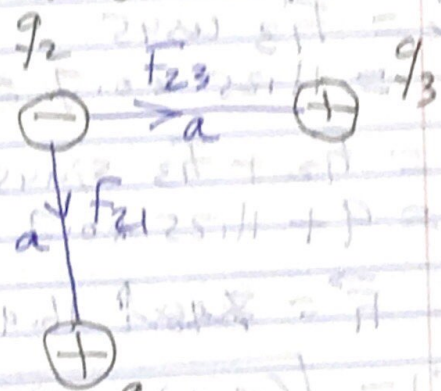 q2
F23
q3
−
+
a
a
F21
+